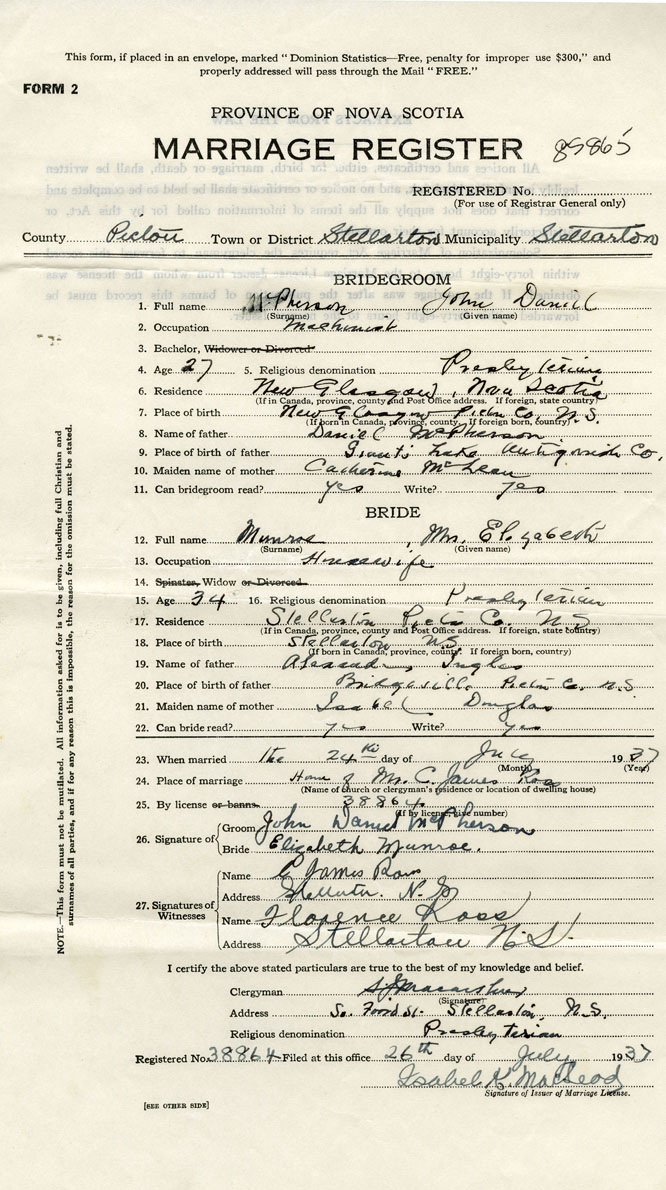 This form, if placed in an envelope, marked " Dominion Statistics—Free, penalty for improper use $300," and
properly addressed will pass through the Mail " FREE."
FORM 2
PROVINCE OF NOVA SCOTIA
MARRIAGE REGISTER 89865
REGISTERED No.
(For use of Registrar General only)
County Pictou Town or District Stellarton Municipality Stellarton
BRIDEGROOM
1. Full name McPherson John Daniel
(Surname) (Given name)
2. Occupation Machinist
3. Bachelor, Widower or Divorced
4. Age 27 5. Religious denomination Presbyterian
6. Residence New Glasgow, Nova Scotia
(If in Canada, province, county and Post Office address. If foreign, state country)
7. Place of birth New Glasgow Pictou Co, N.S.
(If born in Canada, province, county. If foreign, born, country)
8. Name of father Daniel McPherson
9. Place of birth of father Giants Lake Antigonish Co,
10. Maiden name of mother Catherine McLean
11. Can bridegroom read? yes Write? yes
BRIDE
12. Full name Munroe, Mrs. Elizabeth
(Surname) (Given name)
13. Occupation Housewife
14. Spinster, Widow or Divorced
15. Age 34 16. Religious denomination Presbyterian
17. Residence Stellarton Pictou Co. N.S
(If in Canada, province, county and Post Office address. If foreign, state country)
18. Place of birth Stellarton N.S.
(If born in Canada, province, county. If foreign, born, country)
19. Name of father Alexander Inglas
20. Place of birth of father Bridgeville Pictou Co. N.S
21. Maiden name of mother Isabel Douglas
22. Can bride read? yes Write? yes
23. When married the 24th day of July 1937
(Month) (Year)
24. Place of marriage Home of Mr. C. James Ross
(Name of church or clergyman's residence or location of dwelling house)
25. By license or banns 38864
(If by license, give number)
26. Signature of Groom John Daniel McPherson
Bride Elizabeth Munroe.
27. Signatures of Witnesses
Name C James Ross
Address Stellarton. N.S
Name Florence Ross
Address Stellarton N.S.
I certify the above stated particulars are true to the best of my knowledge and belief.
Clergyman S J Macarthur
(Signature)
Address So. Foord St. Stellarton, N.S.
Religious denomination Presbyterian
Registered No. 38864 Filed at this office 26th day of July 1937
Isabel K. MacLeod
Signature of Issuer of Marriage License.
[SEE OTHER SIDE]
NOTE.—This form must not be mutilated. All information asked for is to be given, including full Christian and
surnames of all parties, and if for any reason this is impossible, the reason for the omission must be stated.